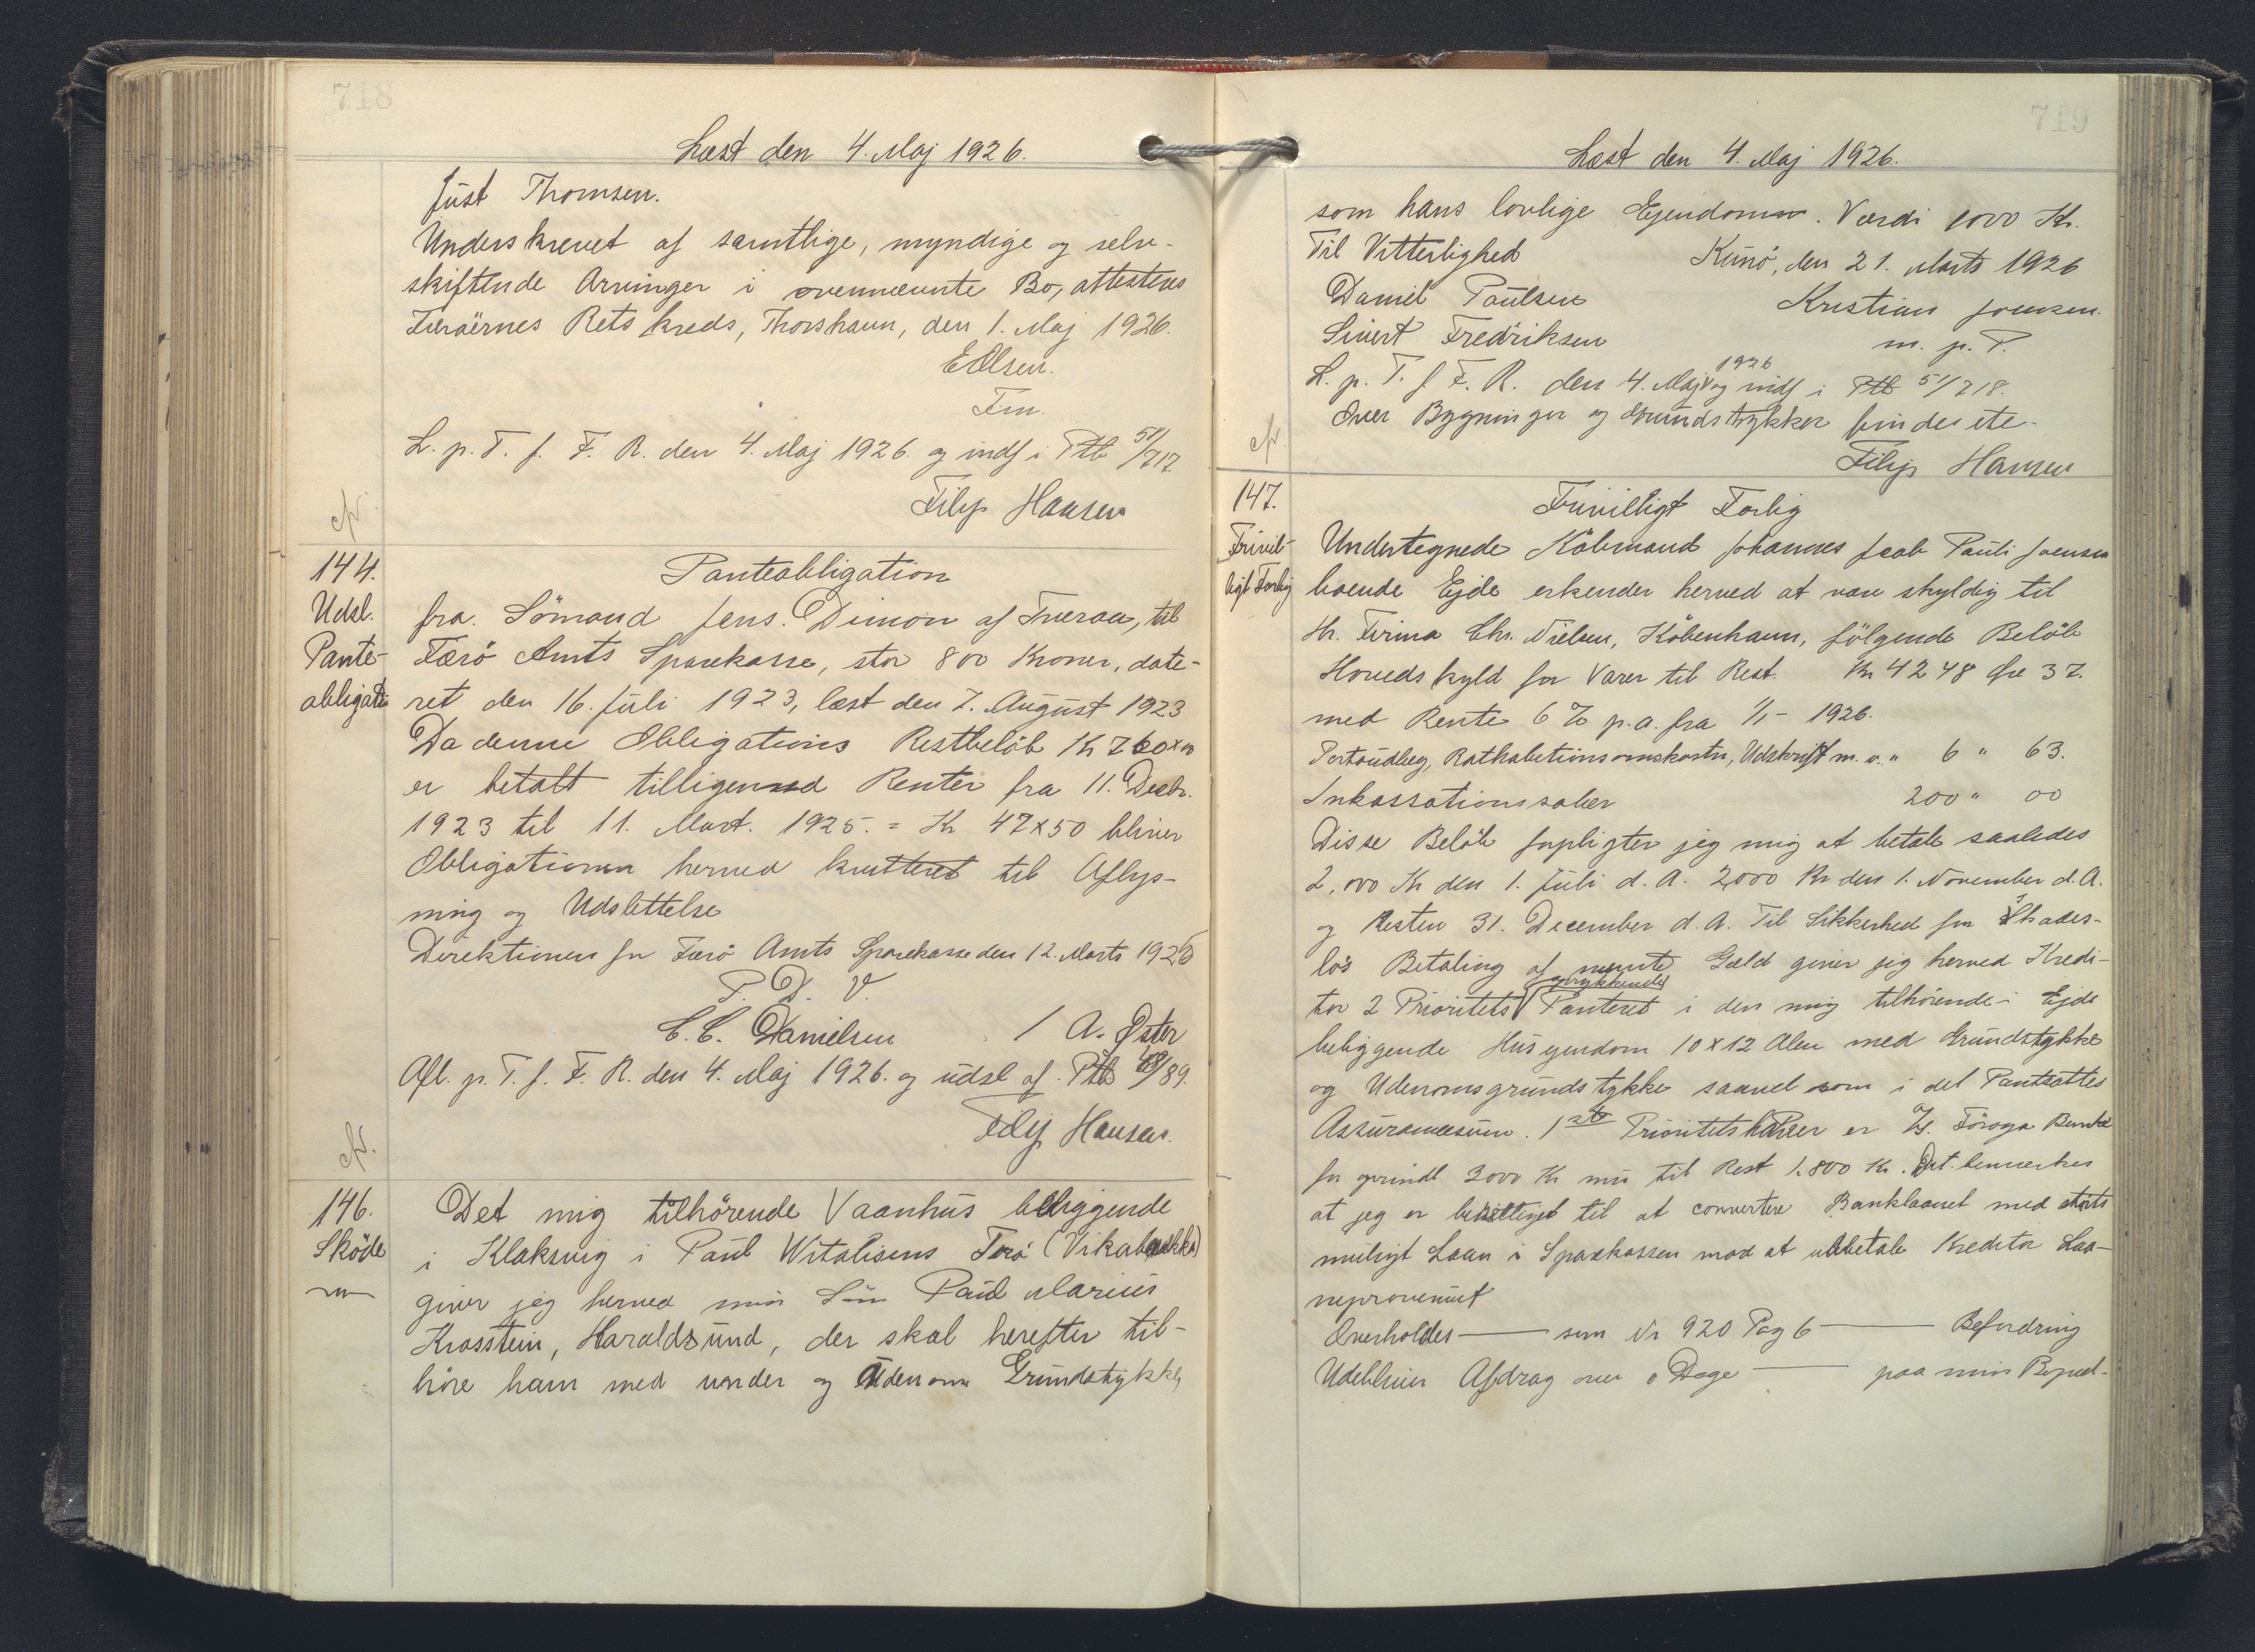 718
Læst den 4. Maj 1926.
Just Thomsen.
Underskrevet af samtlige, myndige og selv-
skiftende Arvinger i ovennævnte Bo, attesteres
Færøernes Retskreds, Thorshavn, den 1. Maj 1926.
EOlsen.
Fm.
L. p. T. f. F. R. den 4. Maj 1926. og indf i Ptb 51/717.
Filip Hansen
cfr.
144.
Udsl.
Pante-
obligati
Panteobligation
fra. Sömand Jens. Dimon af Tveraa, til
Færö Amts Sparekasse, stor 800 Kroner, date-
ret den 16. Juli 1923, læst den 7. August 1923
Da denne Obligations Restbelöb Kr 760x00
er betalt tilligemed Renter fra 11. Decbr.
1923 til 11. Mart. 1925. = Kr 47x50 bliver
Obligationen herved kvitteret til Aflys-
ning og Udslettelse
Direktionen for Færö Amts Sparekasse den 12. Marts 1926
P. D. V.
C. C. Danielsen / A. Øster
Afl. p. T. f. F. R. den 4. Maj 1926. og udsl af Ptb 48/89.
Filip Hansen.
cfr.
146.
Sköde
Det mig tilhörende Vaanhus beliggende
i Klaksvig i Paul Witalisens Trö (Vikabrekka)
giver jeg herved min Sön Paul Marius
Krosstein, Haraldssund, der skal herefter til-
höre ham med under og Udenoms Grundstykke,
719
Læst den 4. Maj 1926.
som hans lovlige Ejendom. Værdi 1000 Kr.
Til Vitterlighed Kunö, den 21. Marts 1926
Daniel Poulsen Kristian Joensen.
Sivert Fredriksen m. p. P.
L. p. T. f F. R. den 4. Maj 1926 og indf i Ptb 51/718.
Over Bygninger og Grundstykker findes ete.
cfr.
Filip Hansen
147.
Frivil-
ligt Forlig
Frivilligt Forlig
Undertegnede Köbmand Johannes Jacob Pauli Joensen
boende Ejde erkender herved at være skyldig til
Hr. Firma Chr. Nielsen, Köbenhavn, fölgende Belöb
Hovedskyld for Varer til Rest. Kr 4248 Øre 37.
med Rente 6 % p. a. fra 1/1 - 1926.
Portoudlæg, Rathabitionsomskostn, Udskrift m. v. " 6 " 63.
Inkassationssalær 200 " 00
Disse Belöb forpligter jeg mig at betale saaledes
2,000 Kr den 1. Juli d. A. 2000 Kr den 1. November d. A.
og Resten 31. December d. A. Til Sikkerhed for Skades-
lös Betaling af nævnte Gæld giver jeg herved Kredi-
tor 2 Prioritets oprykkende Panteret i den mig tilhörende i Ejde
beliggende Husejendom 10 x 12 Alen med Grundstykke
og Udenomsgrundstykke saavel som i det Pantsattes
Assurancesum. 1ste Prioritetshaver er A/S. Föroya Banki
for oprindl 3000 Kr nu til Rest 1.800 Kr. Det bemærkes
at jeg er berettiget til at convertere Banklaanet med störts
muligt Laan i Sparekassen mod at udbetale Kreditor Laa-
neprovenuet
Overholdes —— som Nr 920 Pag 6 —— Befordring
Udebliver Afdrag over 8 Dage —— paa min Bopæl-